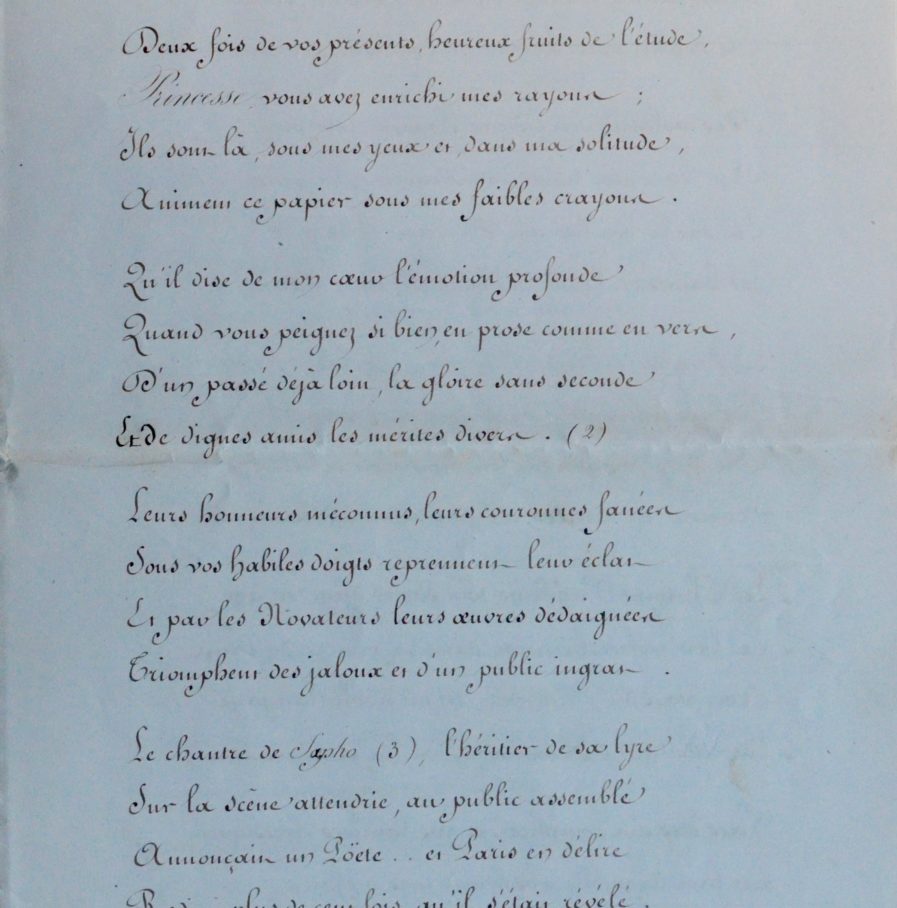 Deux fois de vos présents, heureux fruits de l'étude,
Princesse, vous avez enrichi mes rayons ;
Ils sont là, sous mes yeux et, dans ma solitude,
Animent ce papier sous mes faibles crayons.
Qu'il dise de mon cœur l'émotion profonde
Quand vous peignez si bien, en prose comme en vers,
D'un passé déjà loin, la gloire sans seconde
Et de dignes amis les mérites divers. (2)
Leurs honneurs méconnus, leurs couronnes fanées
Sous vos habiles doigts reprennent leur éclat
Et par les Novateurs leurs œuvres dédaignées
Triomphent des jaloux et d'un public ingrat.
Le chantre de Sapho (3), l'héritier de sa lyre
Sur la scène attendrie, au public assemblé
Annonçait un Pöete .. et Paris en délire
plus de cent fois qu'il s'était révélé.